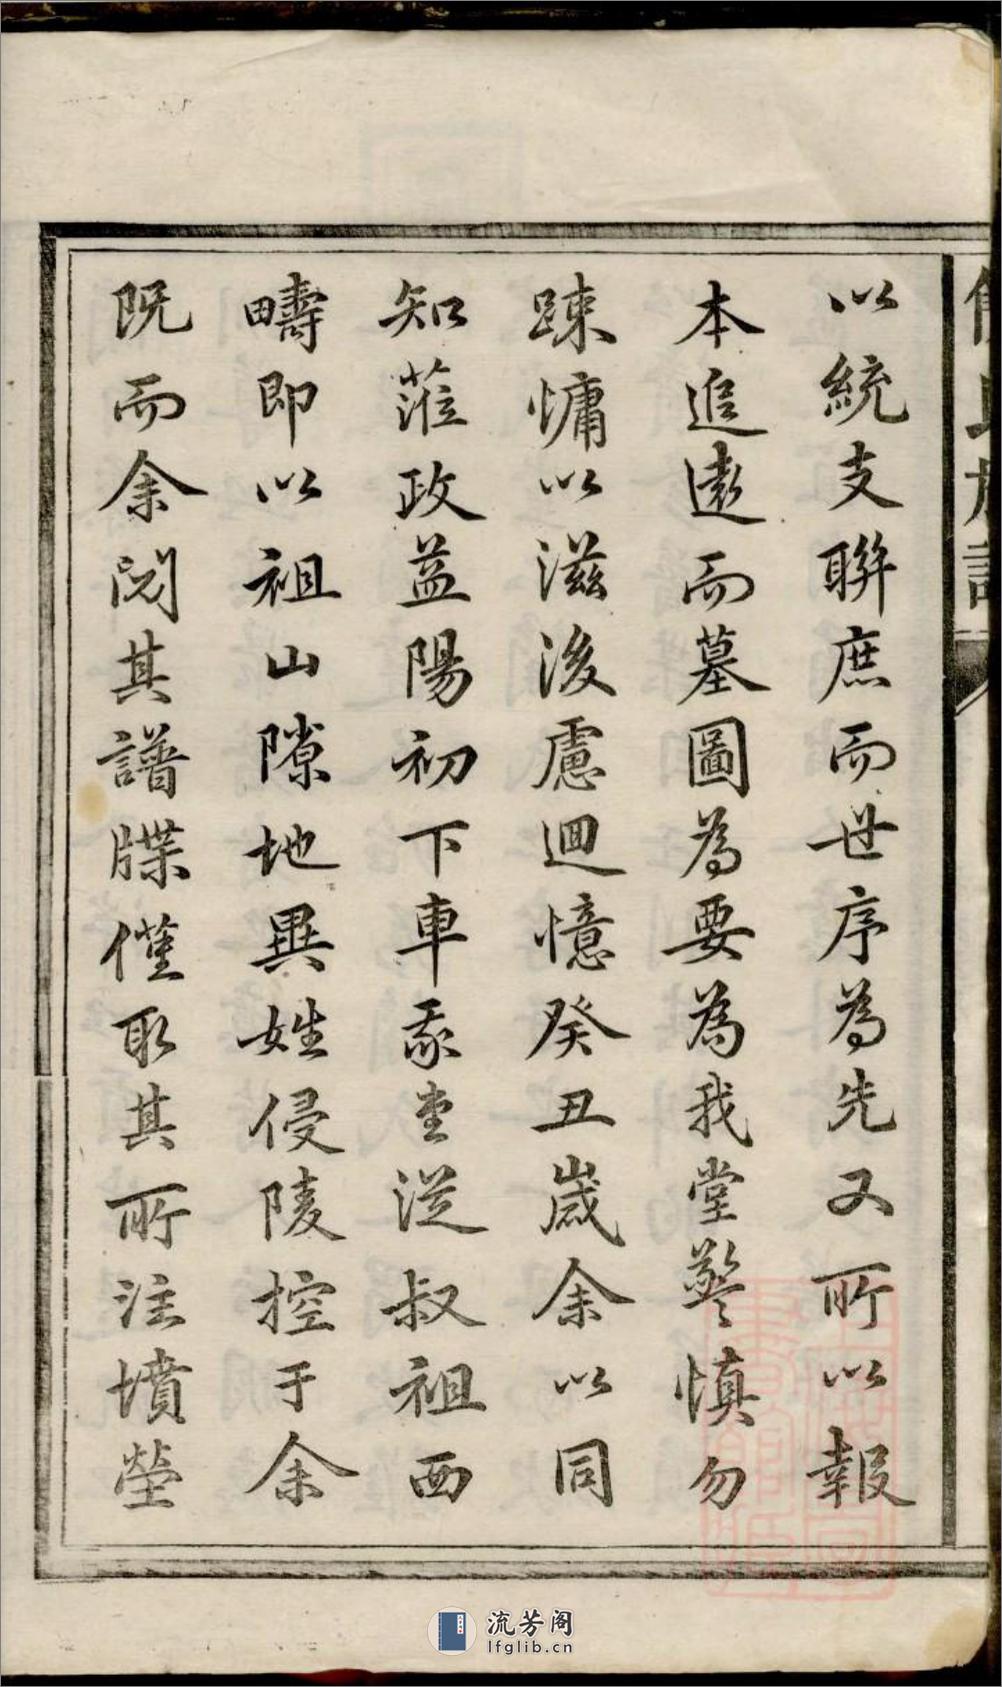 以統支聯庶而世序為先又所以報
本追遠而墓圖為要為我堂警慎勿
踈慵以滋後慮迴憶癸丑歲余以同
知蒞政益陽初下車我堂從叔祖西
疇即以祖山隙地異姓侵陵控于余
既而余閱其譜牒僅取其所注墳塋
氏族譜
流芳阁
lfglib.cn